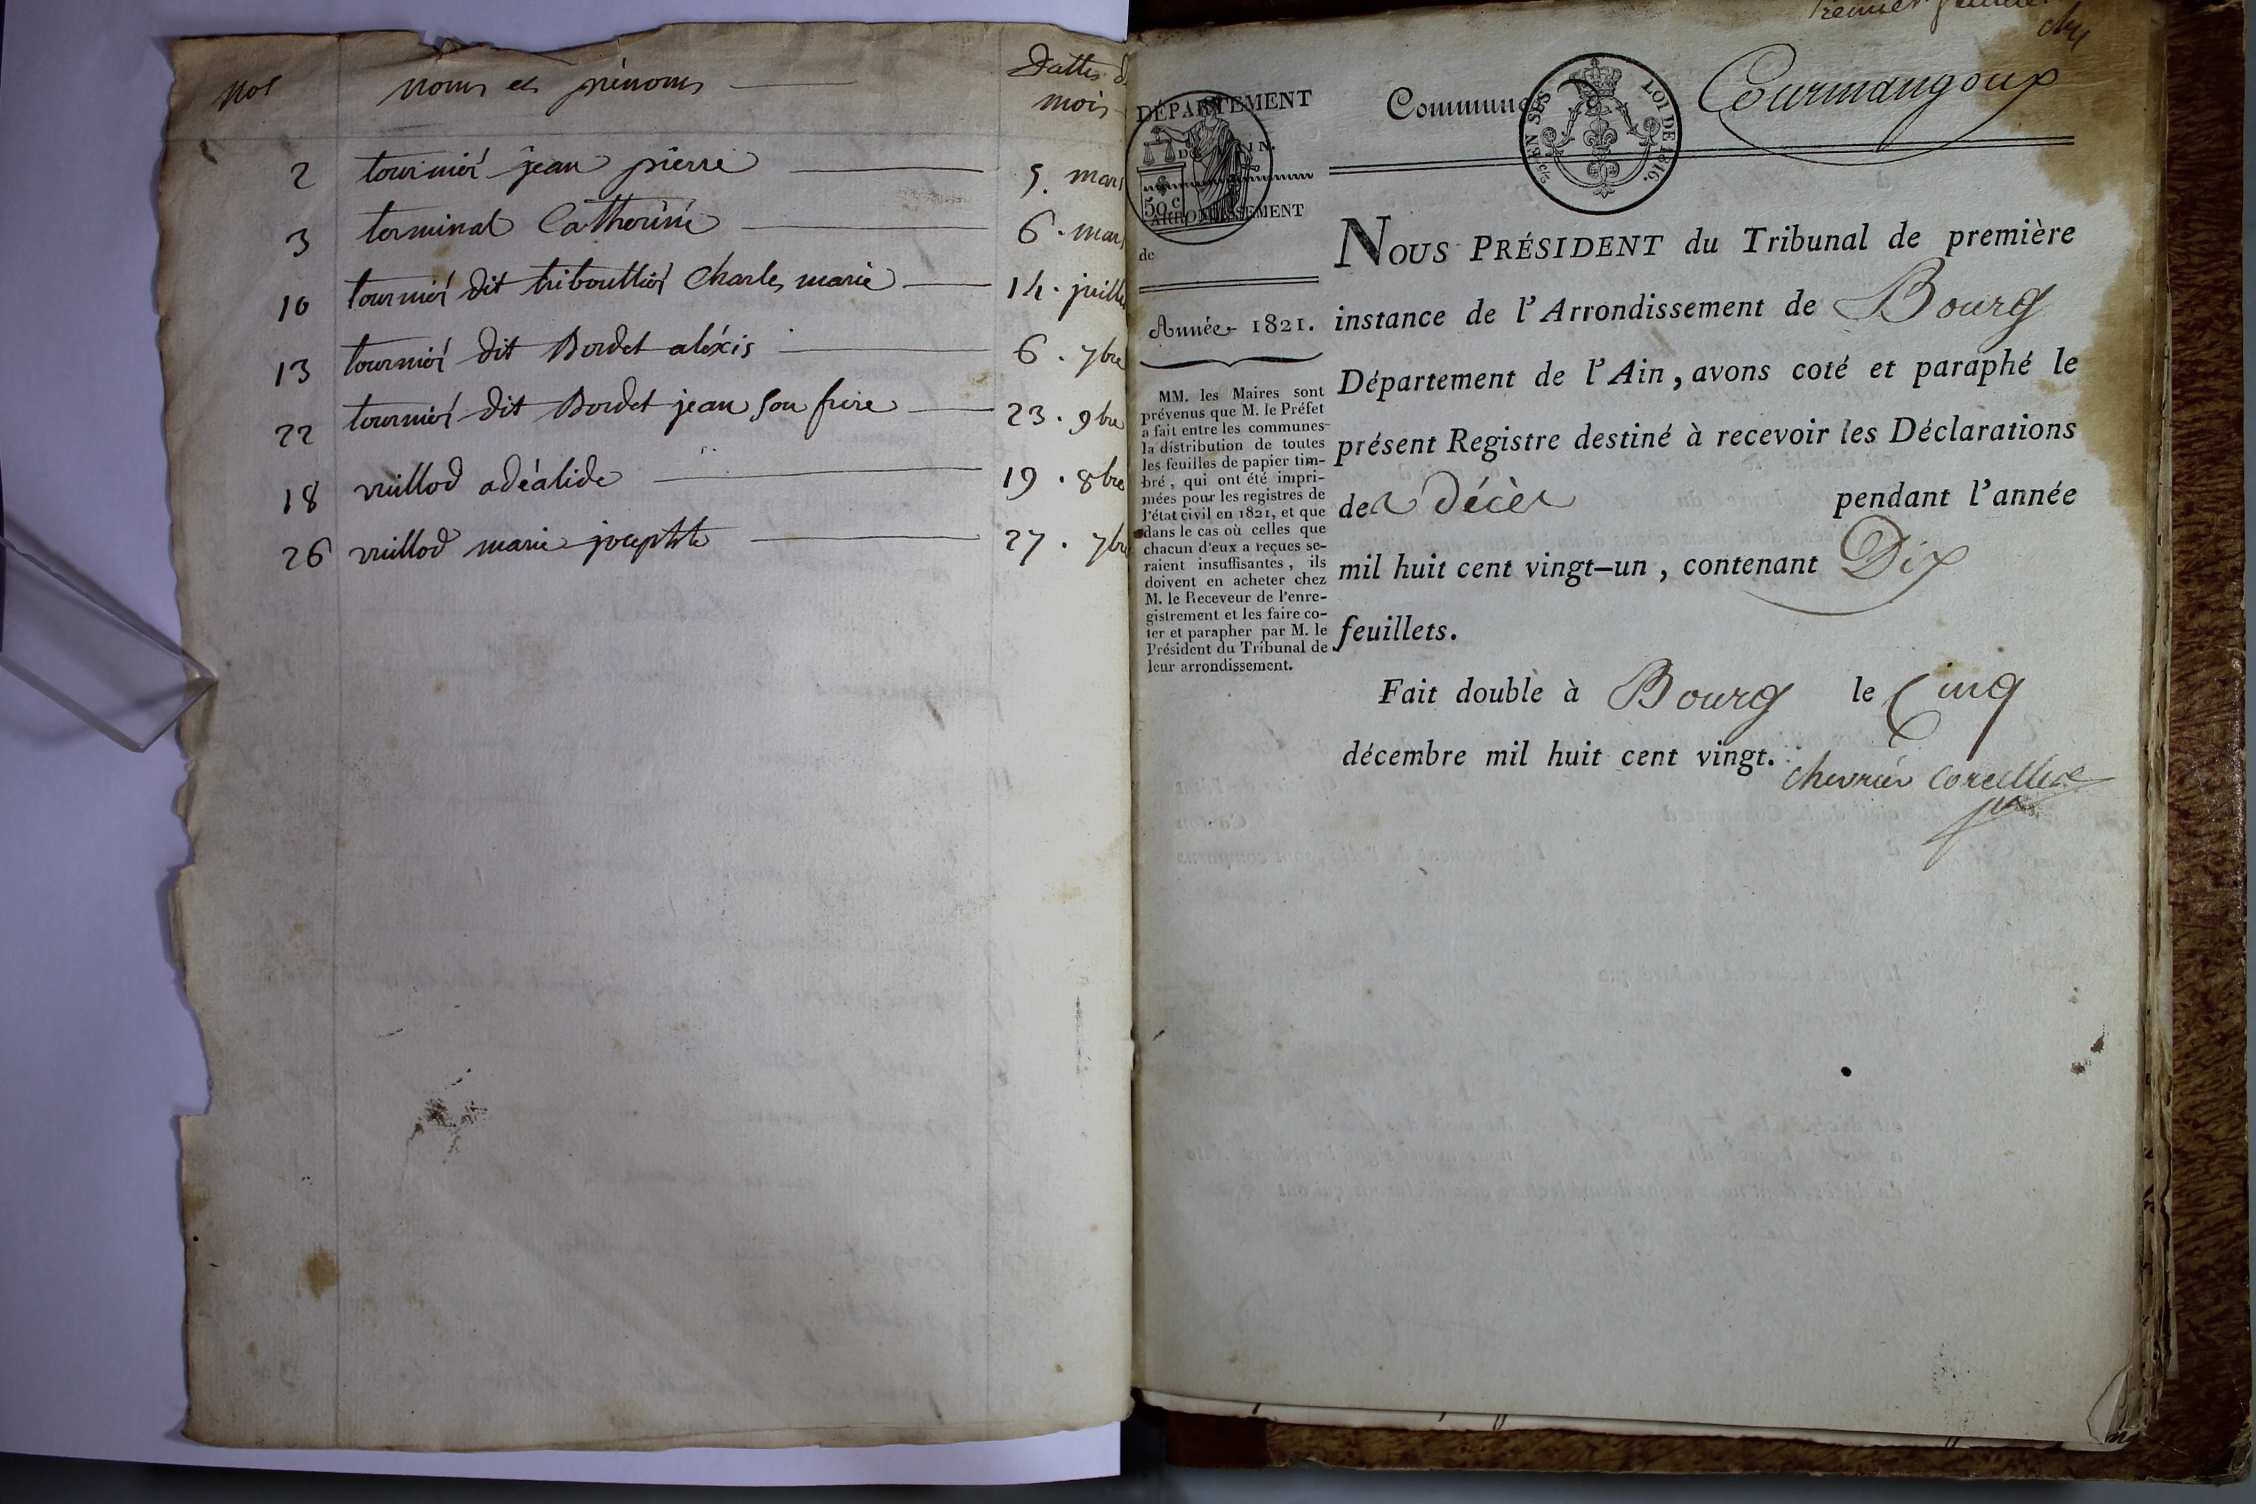 Nos noms et prénoms Dattes d
mois
2 tournier jean pierre 5. mars
3 terminal Catherine 6. mars
10 tournier dit tribouttier Charles marie 14. juille
13 tournier dit Bordet aléxis 6. 7bre
22 tournier dit Bordet jean son frere 23. 9bre
18 vuillod adéalide 19. 8bre
26 vuillod marie josephte 27. 7br
Premier feuillet
chy
DÉPARTEMENT
DE L'AIN.
ARRONDISSEMENT
de
50 c
Année 1821.
MM. les Maires sont
prévenus que M. le Préfet
a fait entre les communes
la distribution de toutes
les feuilles de papier tim-
bré, qui ont été impri-
mées pour les registres de
l'état civil en 1821, et que
dans le cas où celles que
chacun d'eux a reçues se-
raient insuffisantes, ils
doivent en acheter chez
M. le Receveur de l'enre-
gistrement et les faire co-
ter et parapher par M. le
Président du Tribunal de
leur arrondissement.
Commune de Courmangoux
LOI DE 1816.
NOUS PRÉSIDENT du Tribunal de première
instance de l'Arrondissement de Bourg
Département de l'Ain, avons coté et paraphé le
présent Registre destiné à recevoir les Déclarations
des décès pendant l'année
mil huit cent vingt-un, contenant Dix
feuillets.
Fait double à Bourg le Cinq
décembre mil huit cent vingt.
Chevrier Corcelles